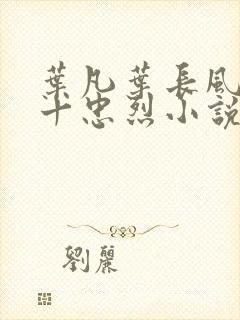 葉凡葉長風
十忠烈小說
劉麗